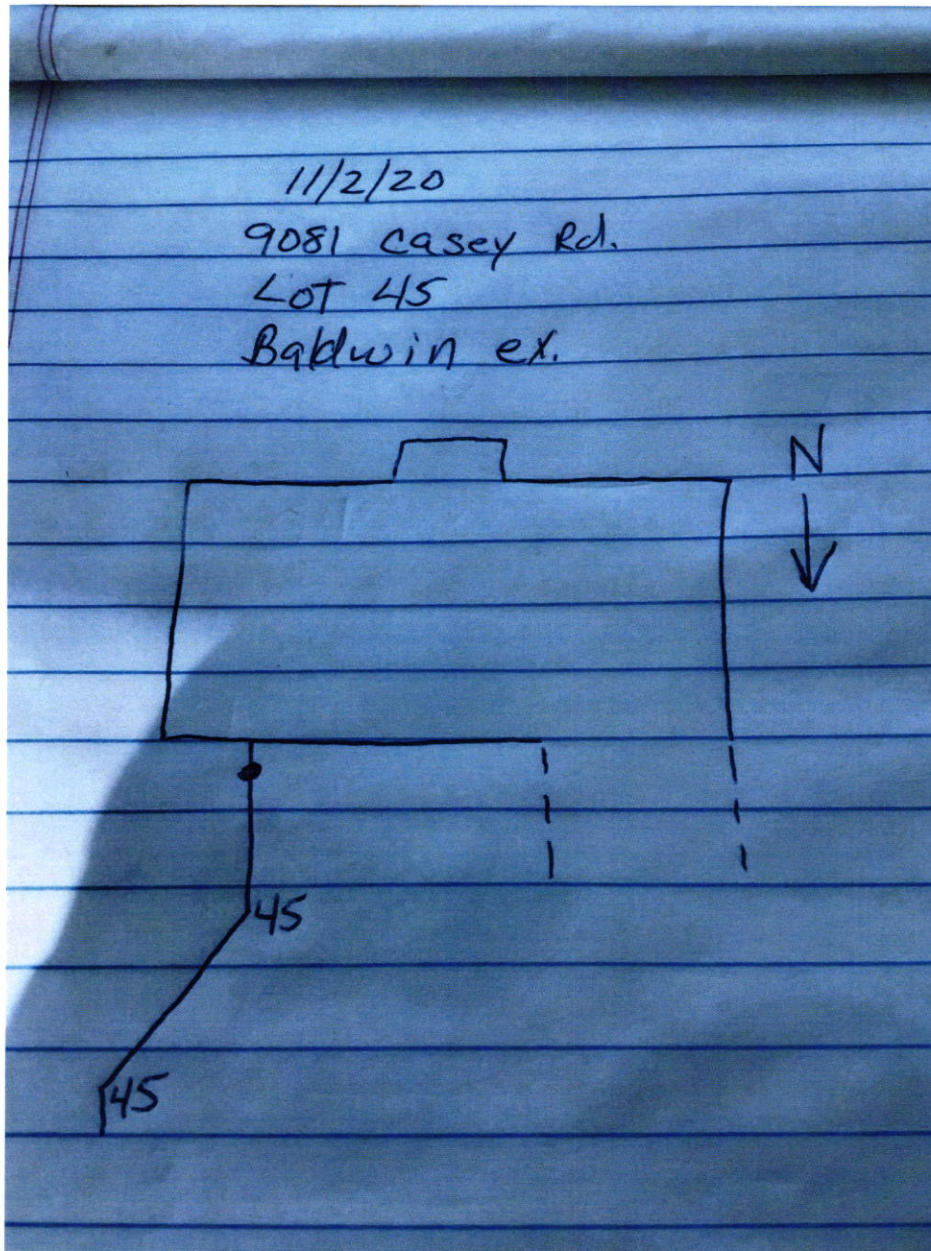 11/2/20
9081 Casey Rd.
Lot 45
Baldwin ex.
N
45
45